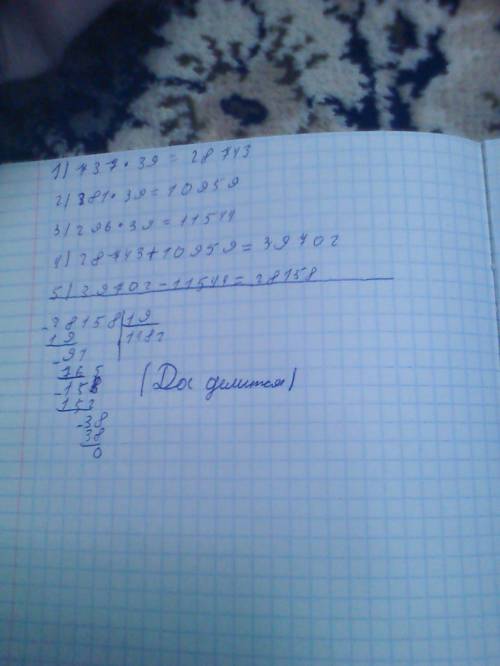 1) 737 • 39 = 28743
2) 281 • 39 = 10959
3) 296 • 39 = 11544
4) 28743 + 10959 = 39702
5) 39702 - 11544 = 28158
-28158|19
19 1182
-91
76
-155
152
-38
38
0
(Да делится)